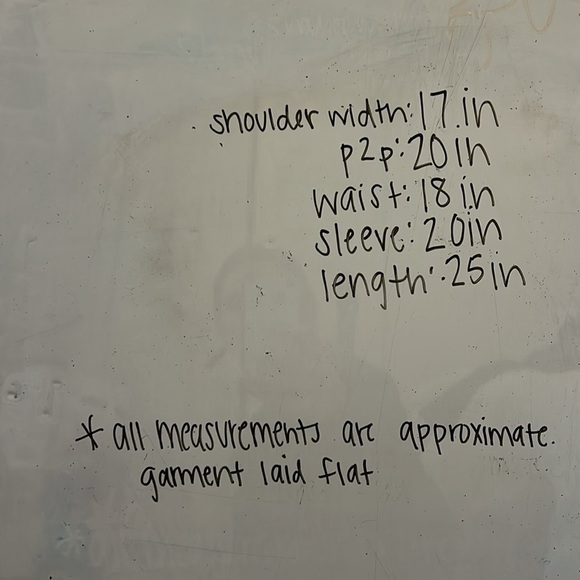 shoulder width: 17 in
p2p: 20 in
waist: 18 in
sleeve: 20 in
length: 25 in
* all measurements are approximate.
garment laid flat